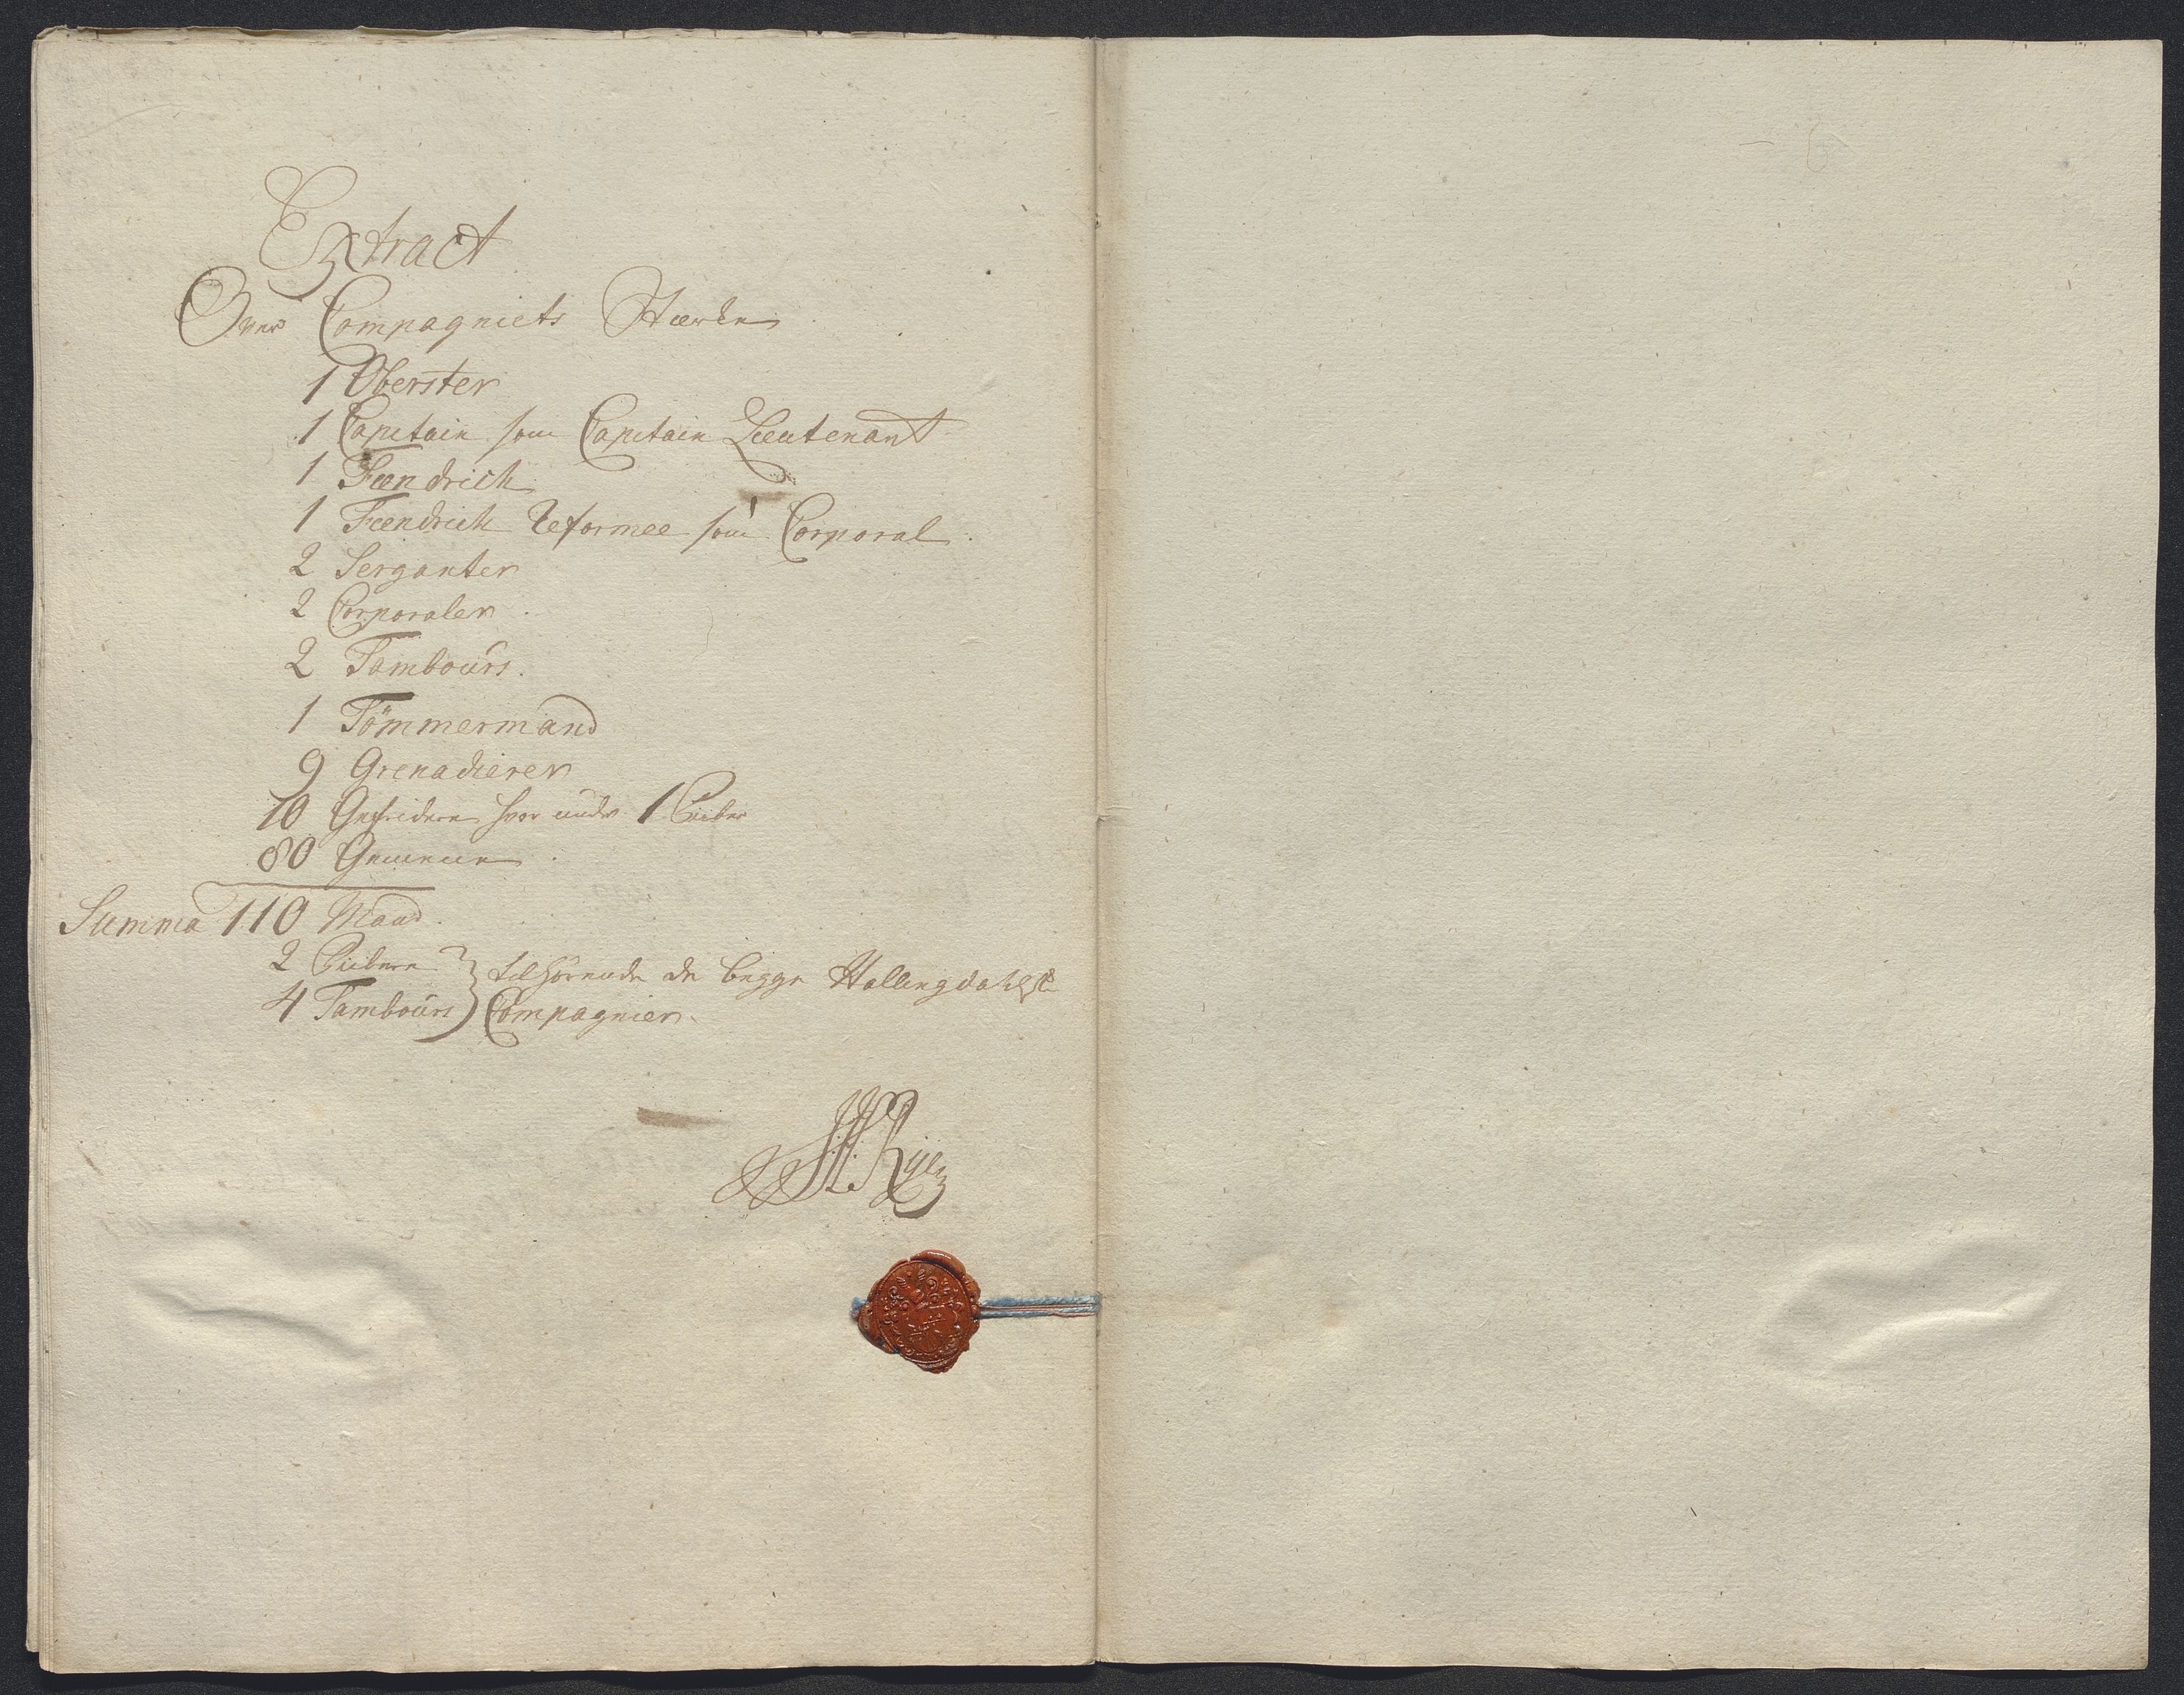 Extract
Over Compagniets Stærke
1 Oberster
1 Capitain som Capitain Lieutenant
1 Fændrich
1 Fændrich Reformee som Corporal
2 Serganter
2 Corporaler
2 Tambours.
1 Tömmermand
9 Grenadierer
10 Gefridere hvor under 1 Piiber
80 Gemene
Summa 110 Mand.
2 Piibere } tilhörende de begge Hallingdahlske
4 Tambours } Compagnier.